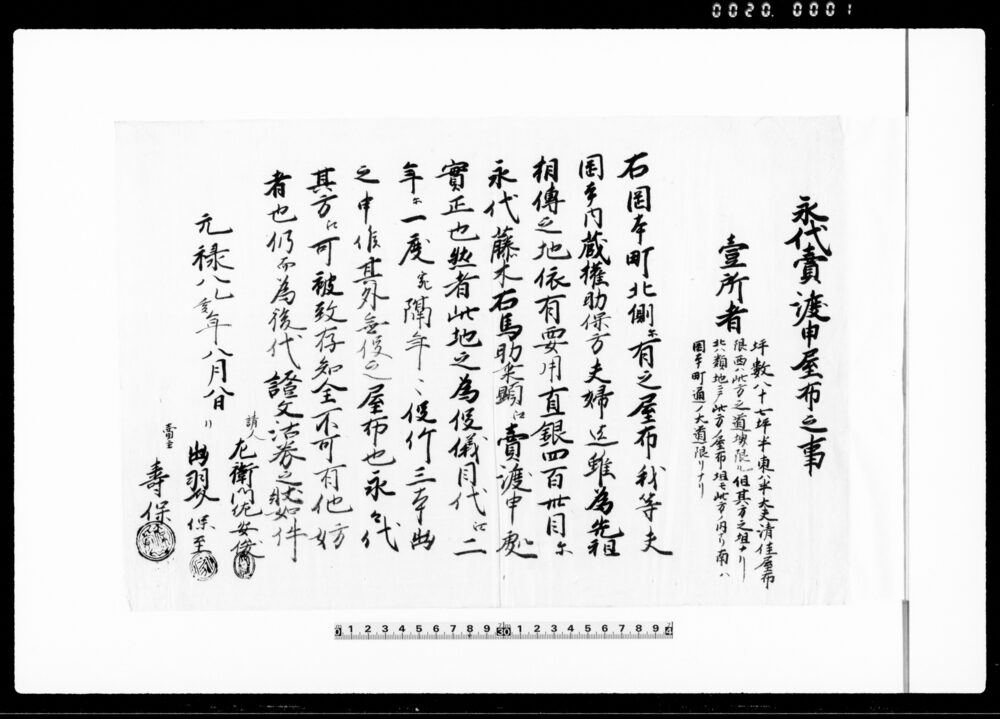 0020. 0001
永代賣渡申屋布之事
壹所者
坪数八十七坪半東ハ半大夫清佳屋布
限西ハ此方之道堺限但其方之垣ナリ
北ハ類地ニ而此方ノ屋布垣モ此方ノ内ナリ南ハ
岡本町通ノ大道限リナリ
右岡本町北側ニ有之屋布我等夫
岡本内蔵権助保方夫婦迄雖為先祖
相傳之地依有要用直銀四百卅目ニ
永代藤木右馬助 江賣渡申處
實正也然者此地之為役儀月代江二
年ニ一度宛隔年ニ役竹三本出
之申候其外無役之屋布也永々代
其方江可被致存知全不可有他方妨
者也仍而為後代證文沽券之状如件
元禄八乙亥年八月八日
請人
左衛門佐安
出翠 保至
賣主 壽保
0 1 2 3 4 5 6 7 8 9 30 1 2 3 4 5 6 7 8 9 4